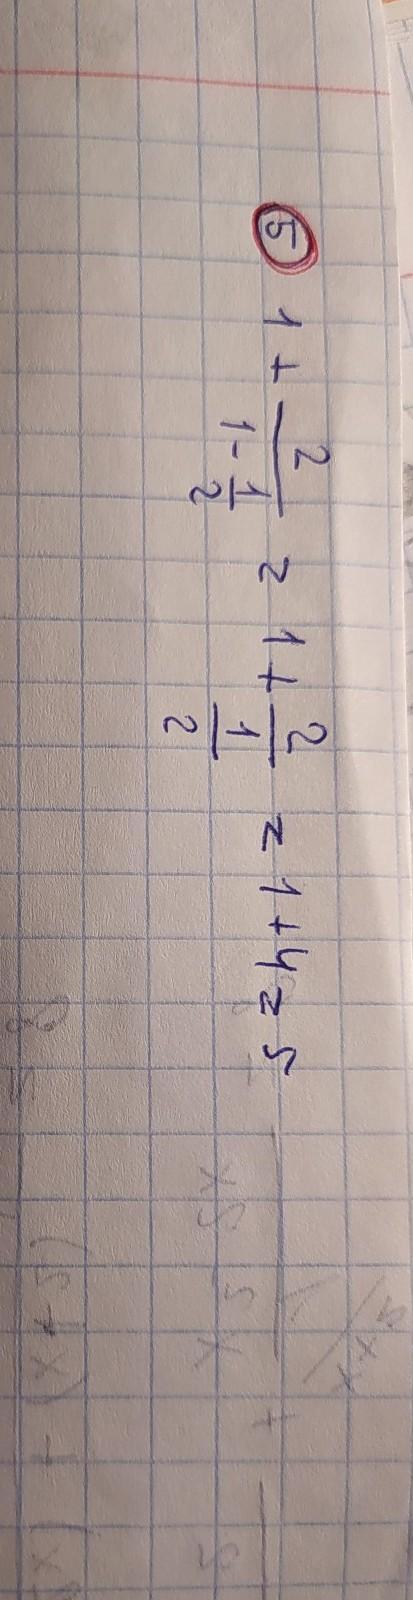 5 1 + 2/(1 - 1/2) = 1 + 2/(1/2) = 1 + 4 = 5